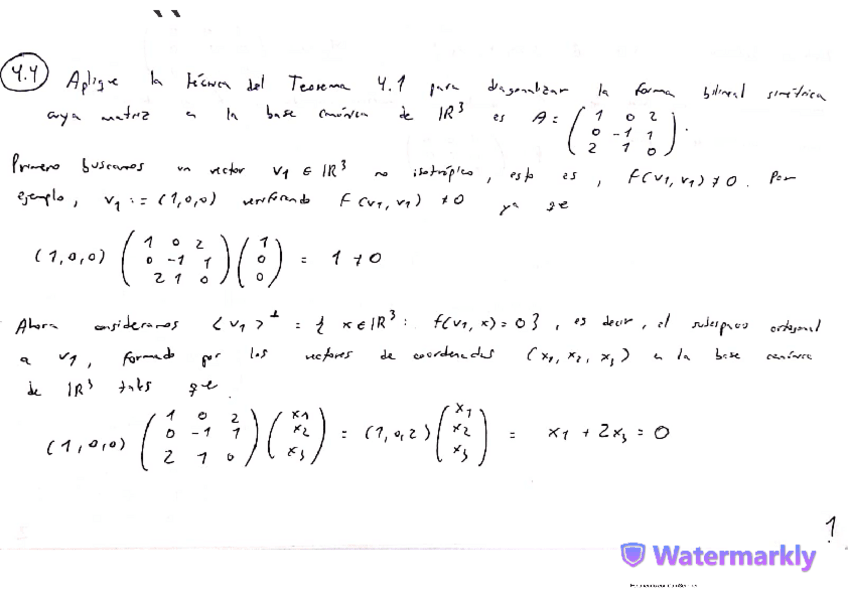 4.4 Aplique la técnica del Teorema 4.1 para diagonalizar la forma bilineal simétrica
cuya matriz en la base canónica de IR³ es A = ( 1 0 2 / 0 -1 1 / 2 1 0 ).
Primero buscamos un vector v1 ∈ IR³ no isotrópico, esto es, f(v1, v1) ≠ 0. Por
ejemplo, v1 := (1,0,0) verificando f(v1, v1) ≠ 0 ya que
(1,0,0) ( 1 0 2 / 0 -1 1 / 2 1 0 ) ( 1 / 0 / 0 ) = 1 ≠ 0
Ahora consideramos <v1>⊥ = { x ∈ IR³ : f(v1, x) = 0 }, es decir, el subespacio ortogonal
a v1, formado por los vectores de coordenadas (x1, x2, x3) en la base canónica
de IR³ tales que
(1,0,0) ( 1 0 2 / 0 -1 1 / 2 1 0 ) ( x1 / x2 / x3 ) = (1,0,2) ( x1 / x2 / x3 ) = x1 + 2x3 = 0
1
Watermarkly